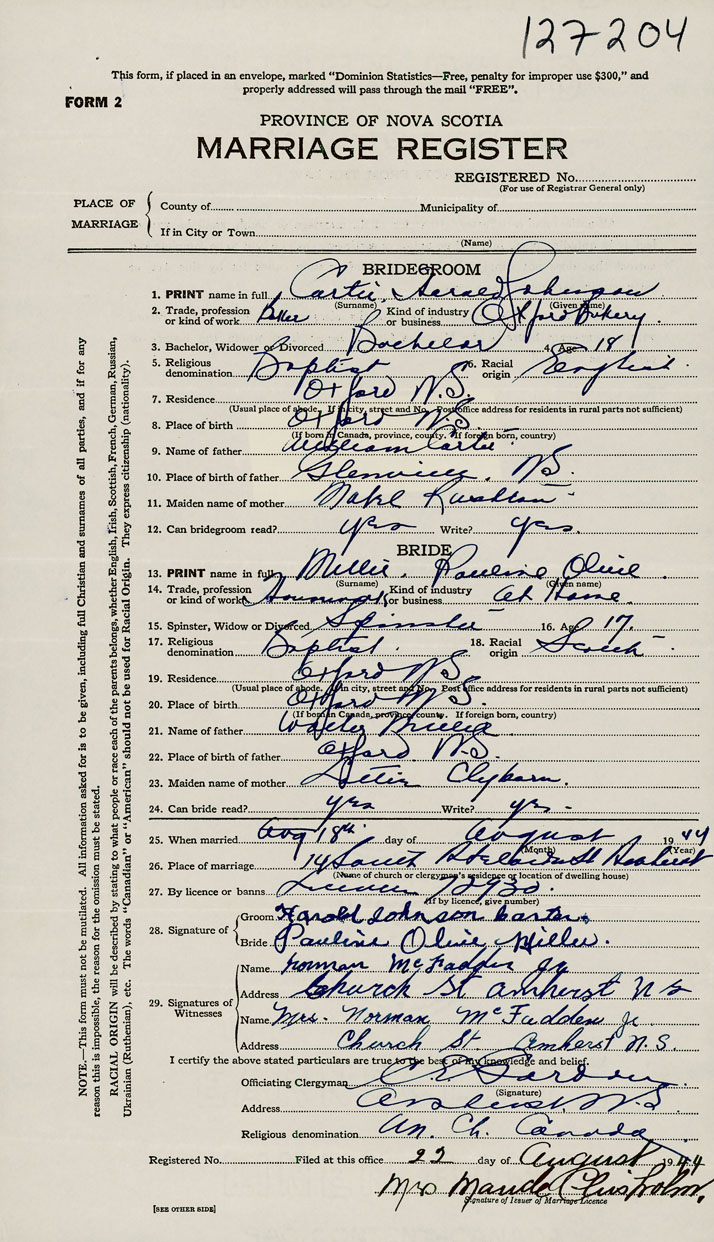 127204
This form, if placed in an envelope, marked "Dominion Statistics—Free, penalty for improper use $300," and
properly addressed will pass through the mail "FREE".
FORM 2
PROVINCE OF NOVA SCOTIA
MARRIAGE REGISTER
REGISTERED No.
(For use of Registrar General only)
PLACE OF MARRIAGE
County of Municipality of
If in City or Town
(Name)
BRIDEGROOM
1. PRINT name in full Carter Harold Johnson
(Surname) (Given name)
2. Trade, profession or kind of work Baker Kind of industry or business Oxford Bakery
3. Bachelor, Widower or Divorced Bachelor 4. Age 18
5. Religious denomination Baptist 6. Racial origin English
7. Residence Oxford N.S.
(Usual place of abode. If in city, street and No. Post office address for residents in rural parts not sufficient)
8. Place of birth Oxford N.S.
(If born in Canada, province, county. If foreign born, country)
9. Name of father William Carter
10. Place of birth of father Glenville, N.S.
11. Maiden name of mother Rushton
12. Can bridegroom read? yes Write? yes.
BRIDE
13. PRINT name in full Miller, Pauline Olive
(Surname) (Given name)
14. Trade, profession or kind of work Kind of industry or business At Home
15. Spinster, Widow or Divorced Spinster 16. Age 17.
17. Religious denomination Baptist. 18. Racial origin Scotch
19. Residence Oxford N.S.
(Usual place of abode. If in city, street and No. Post office address for residents in rural parts not sufficient)
20. Place of birth Oxford N.S.
(If born in Canada, province, county. If foreign born, country)
21. Name of father Walter Miller
22. Place of birth of father Oxford N.S.
23. Maiden name of mother Clyburn.
24. Can bride read? yes Write? yes
25. When married Aug 18th day of August 1944
(Month) (Year)
26. Place of marriage 14 South Adelaide St Amherst
(Name of church or clergyman's residence or location of dwelling house)
27. By licence or banns License 12930.
(If by licence, give number)
28. Signature of
Groom Harold Johnson Carter.
Bride Pauline Olive Miller.
29. Signatures of Witnesses
Name Norman McFadden Jr
Address Church St Amherst N S
Name Mrs. Norman McFadden Jr.
Address Church St. Amherst N.S.
I certify the above stated particulars are true to the best of my knowledge and belief.
Officiating Clergyman
(Signature)
Address Amherst, N.S.
Religious denomination Un. Ch. Canada
Registered No. Filed at this office 22 day of August 1944
Mrs Maude Chisholm.
Signature of Issuer of Marriage Licence
[SEE OTHER SIDE]
NOTE.—This form must not be mutilated. All information asked for is to be given, including full Christian and surnames of all parties, and if for any
reason this is impossible, the reason for the omission must be stated.
RACIAL ORIGIN will be described by stating to what people or race each of the parents belongs, whether English, Irish, Scottish, French, German, Russian,
Ukrainian (Ruthenian), etc. The words "Canadian" or "American" should not be used for Racial Origin. They express citizenship (nationality).